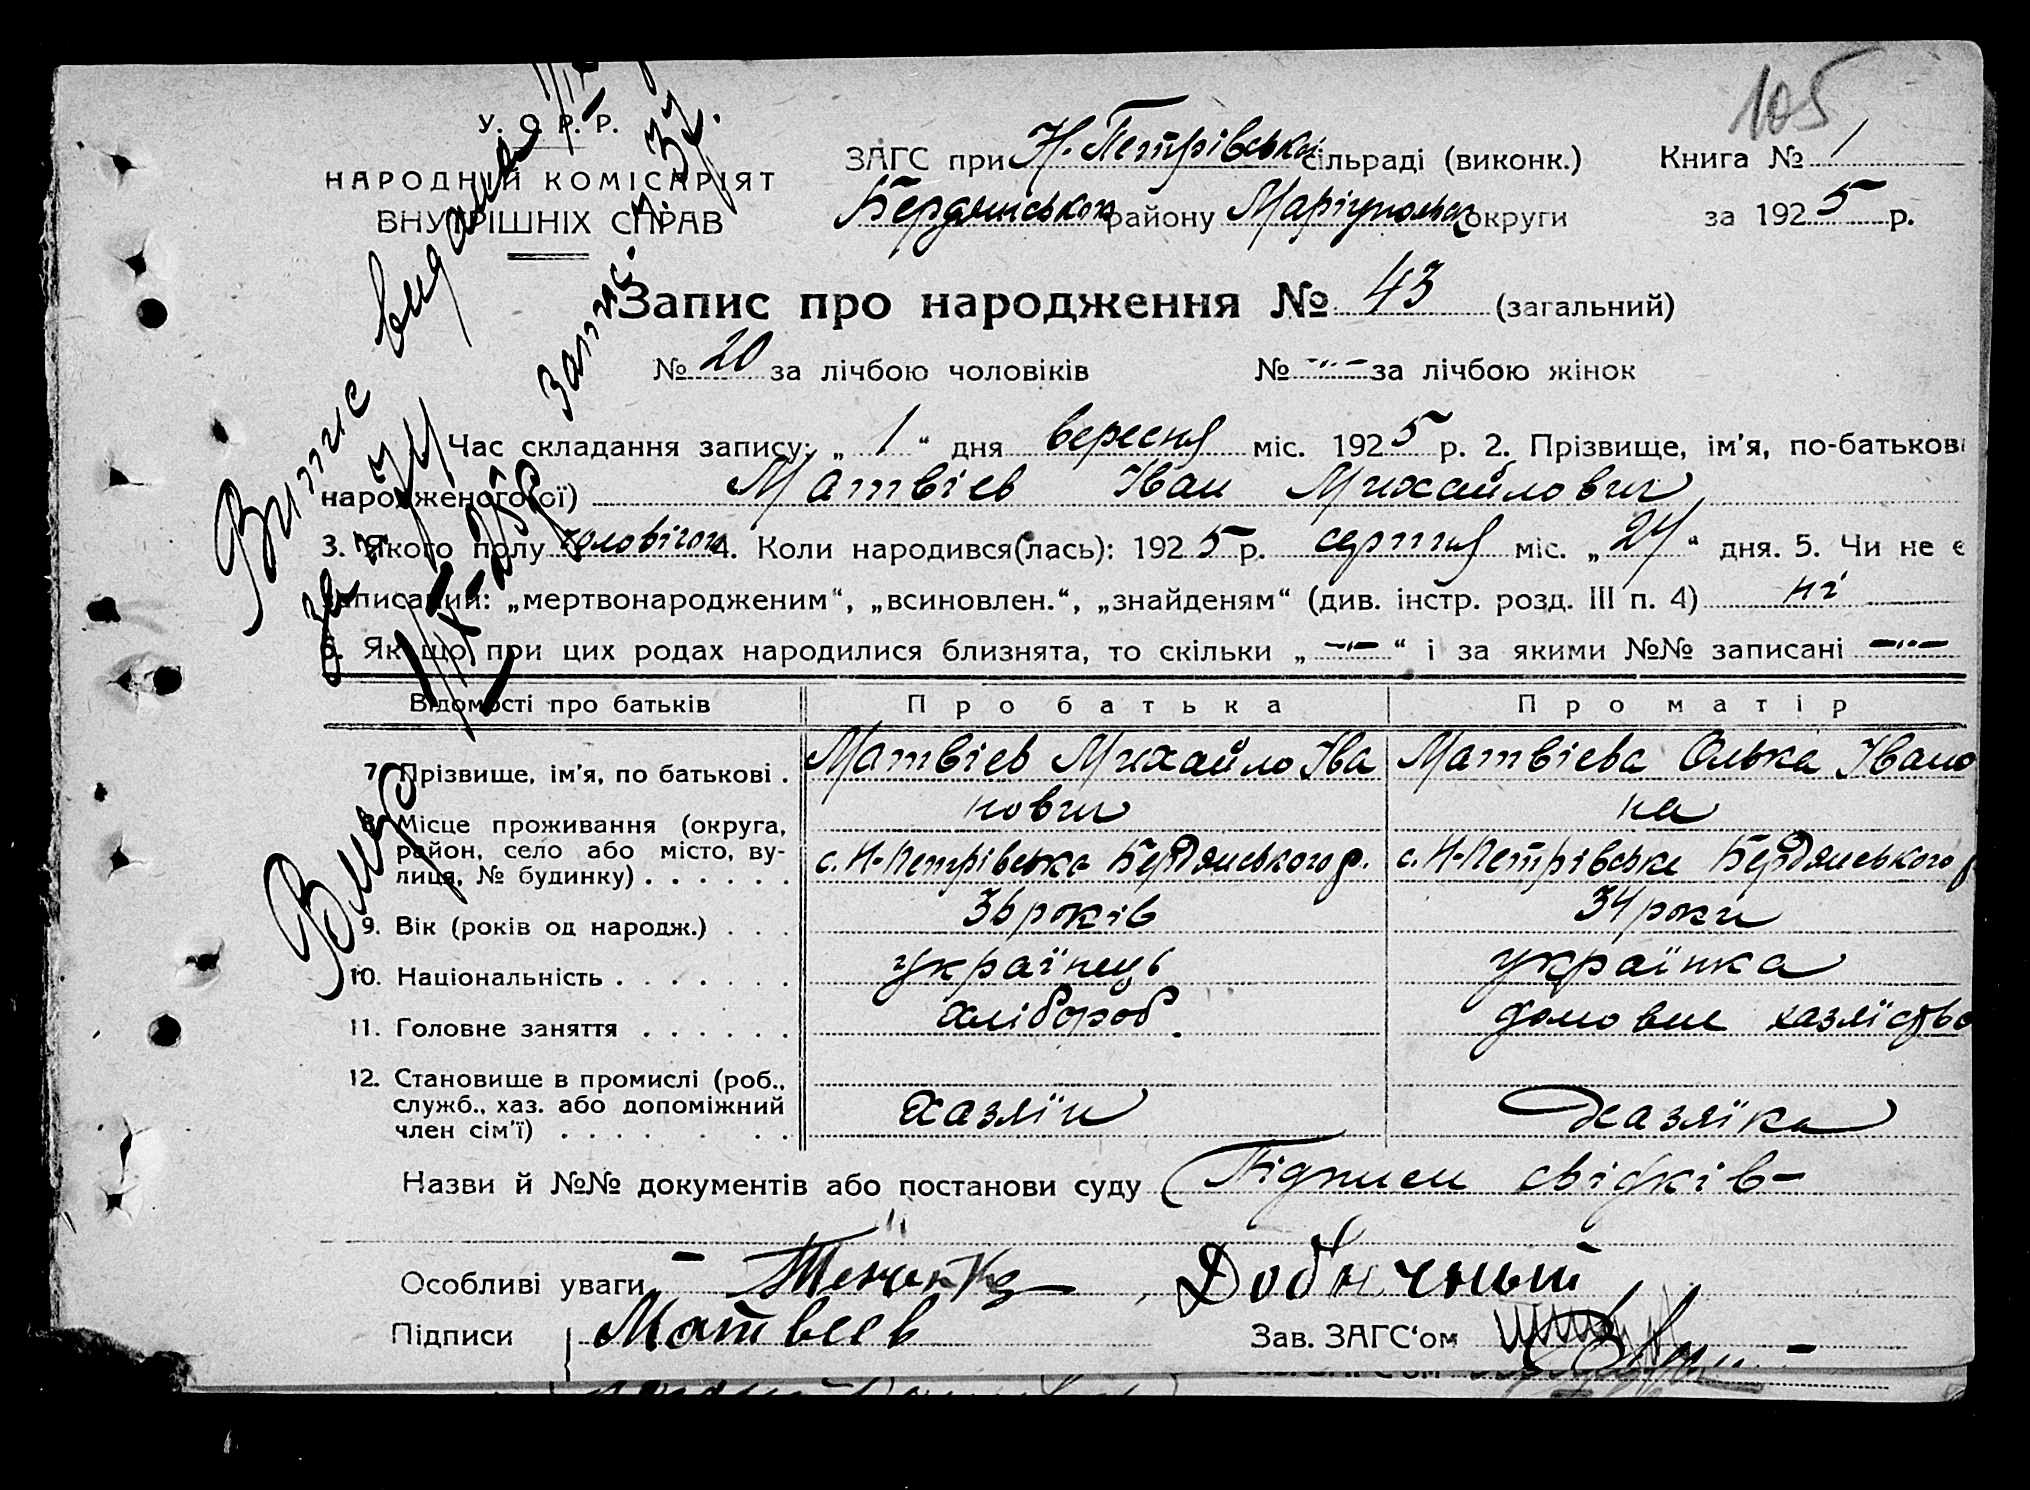 105
У. С. Р. Р.
НАРОДНІЙ КОМІСАРІЯТ
ВНУТРІШНІХ СПРАВ
ЗАГС при Н. Петрівській сільраді (виконк.) Книга № 1
Бердянського району Маріупольськ округи за 1925 р.
Запис про народження № 43 (загальний)
№ 20 за лічбою чоловіків № -„- за лічбою жінок
Час складання запису: „1“ дня вересня міс. 1925 р. 2. Прізвище, ім'я, по-батькові
народженого(ої) Матвієв Іван Михайлович
3. Якого полу чоловічого 4. Коли народився(лась): 1925 р. серпня міс. „24“ дня. 5. Чи не є
записаний: „мертвонародженим“, „всиновлен.“, „знайденям“ (див. інстр. розд. III п. 4) ні
6. Якщо при цих родах народилися близнята, то скільки „-„-“ і за якими №№ записані -„-
Відомості про батьків Про батька Про матір
7. Прізвище, ім'я, по батькові . Матвієв Михайло Іва Матвієва Олька Івано
нович на
8. Місце проживання (округа,
район, село або місто, ву- с. Н-Петрівська Бердянського р. с. Н-Петрівське Бердянського р
лиця, № будинку) . . . . . .
9. Вік (років од народж.) . . . 36 років 34 роки
10. Національність . . . . . . . українець українка
11. Головне заняття . . . . . . хлібороб. домовне хазяїство
12. Становище в промислі (роб.,
служб., хаз. або допоміжний хазяїн хазяїка
член сім'ї) . . . . . . . .
Назви й №№ документів або постанови суду Підписи свідків-
Особливі уваги - Добычный
Підписи Матвеев Зав. ЗАГС'ом
Випис видано
за
запис.
Вмер